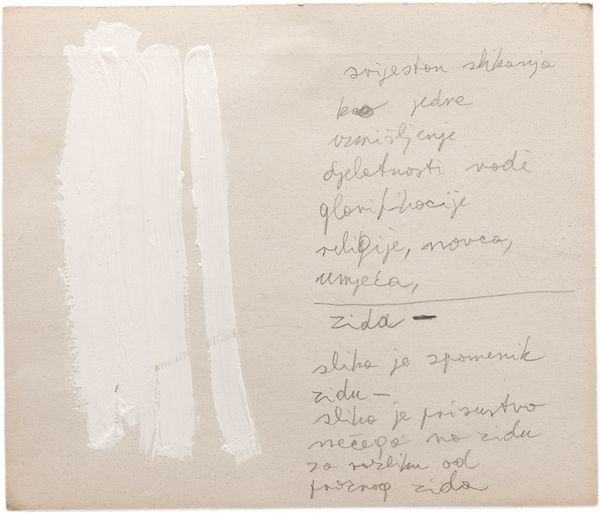 svijestan slikanja
kao jedne
uzvišenije
djelatnosti radi
glorifikacije
religije, novca,
umjeća,
zida –
slika je spomenik
zidu –
slika je prisustvo
nečega na zidu
za razliku od
praznog zida